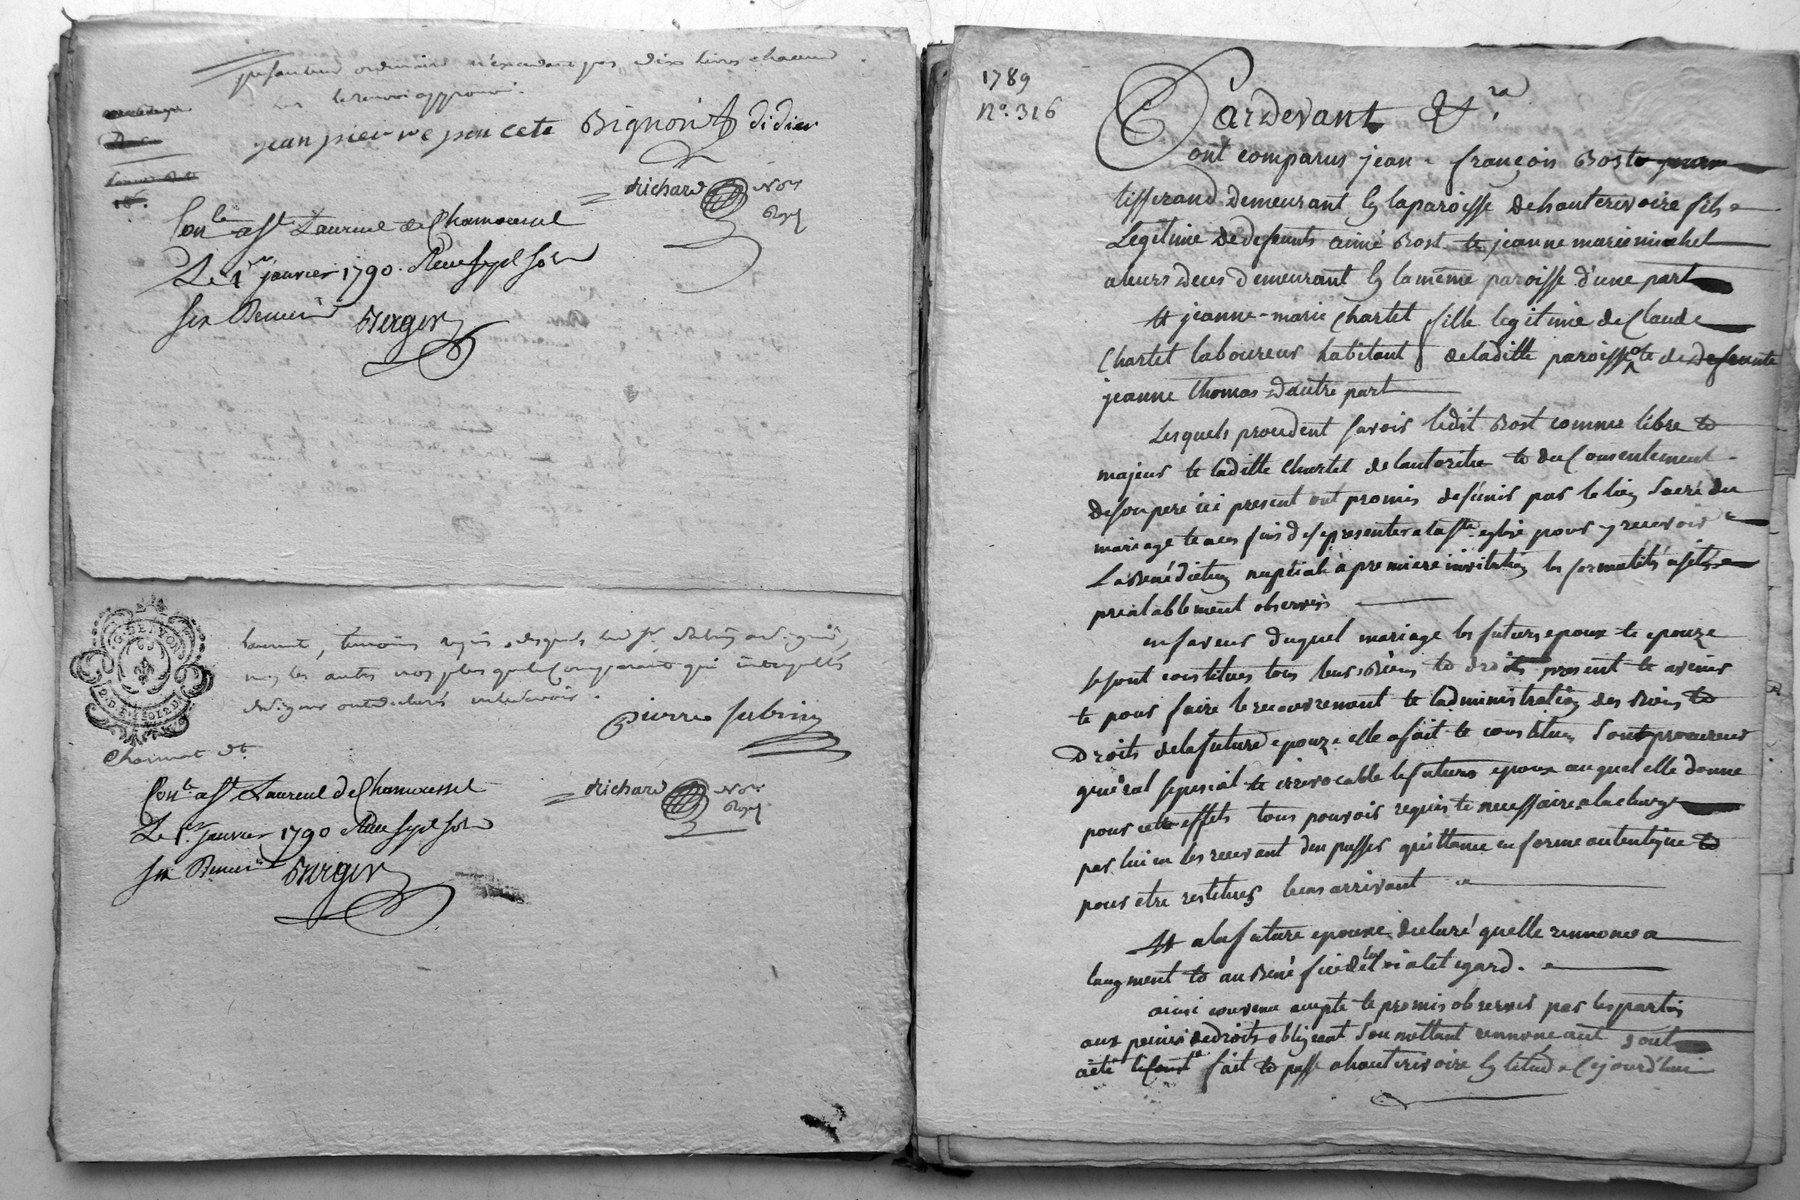 ordinaire n'excedant pas dix livres chacune
le renvoi approuvé.
jean pierre poncete Bignon didier
Richard No.re
Royal
Con.le a St Laurent de Chamousset
Le 1.er janvier 1790. Reçu
six Deniers Berger
G. DE LYON
2.D.F. 1.SOL 2.D
temoins requis,
les autres non plus que le comparant qui interpellés
enquis ont declarés ne le scavoir.
pierre
Con.le a St Laurent de Chamousset
Richard No.re
Royal
Le 1.er janvier 1790 Reçu
six Deniers Berger
1789
N°. 316
Pardevant &.ra
ont comparus jean françois Bost
tisserand demeurant en la paroisse de hauterivoire fils
Legitime de defunts aimé Bost et jeanne marie michel
a leurs deces demeurant en la même paroisse d'une part
Et jeanne-marie Chartet fille legitime de Claude
Chartet laboureur habitant de laditte paroisse et de defunte
jeanne Thomas d'autre part
Lesquels procedent savoir ledit Bost comme libre et
majeur et laditte Chartet de l'autorité et du Consentement
de son pere ici present ont promis de s'unir par le lien Sacré du
mariage et a ces fins de se presenter a la ste eglise pour y recevoir
La Benédiction nuptiale à premiere invitation les formalités
prealablement observés
en faveur duquel mariage les futurs epoux et epouze
se sont constitues tous leurs Biens et droits present et avenir
et pour faire le recouvrement et l'administration des Biens et
Droits de la future epouze elle a fait et constitué Son procureur
général special et irrevocable le futur epoux auquel elle donne
pour cet effets tous pouvoir requis et necessaire a la charge
par lui en les recevant d'en passer quittance en forme autentique et
pour etre restitués le cas arrivant
Et a la future epouze declaré quelle rennonce a
l'augment et au Benéfice de la loi a cet egard.
ainsi convenu accepté et promis observer par les parties
aux peines de droits obligeant Soumettant rennonceant dont
acte fait et passé a hauterivoire en l'etude Cejourd'hui